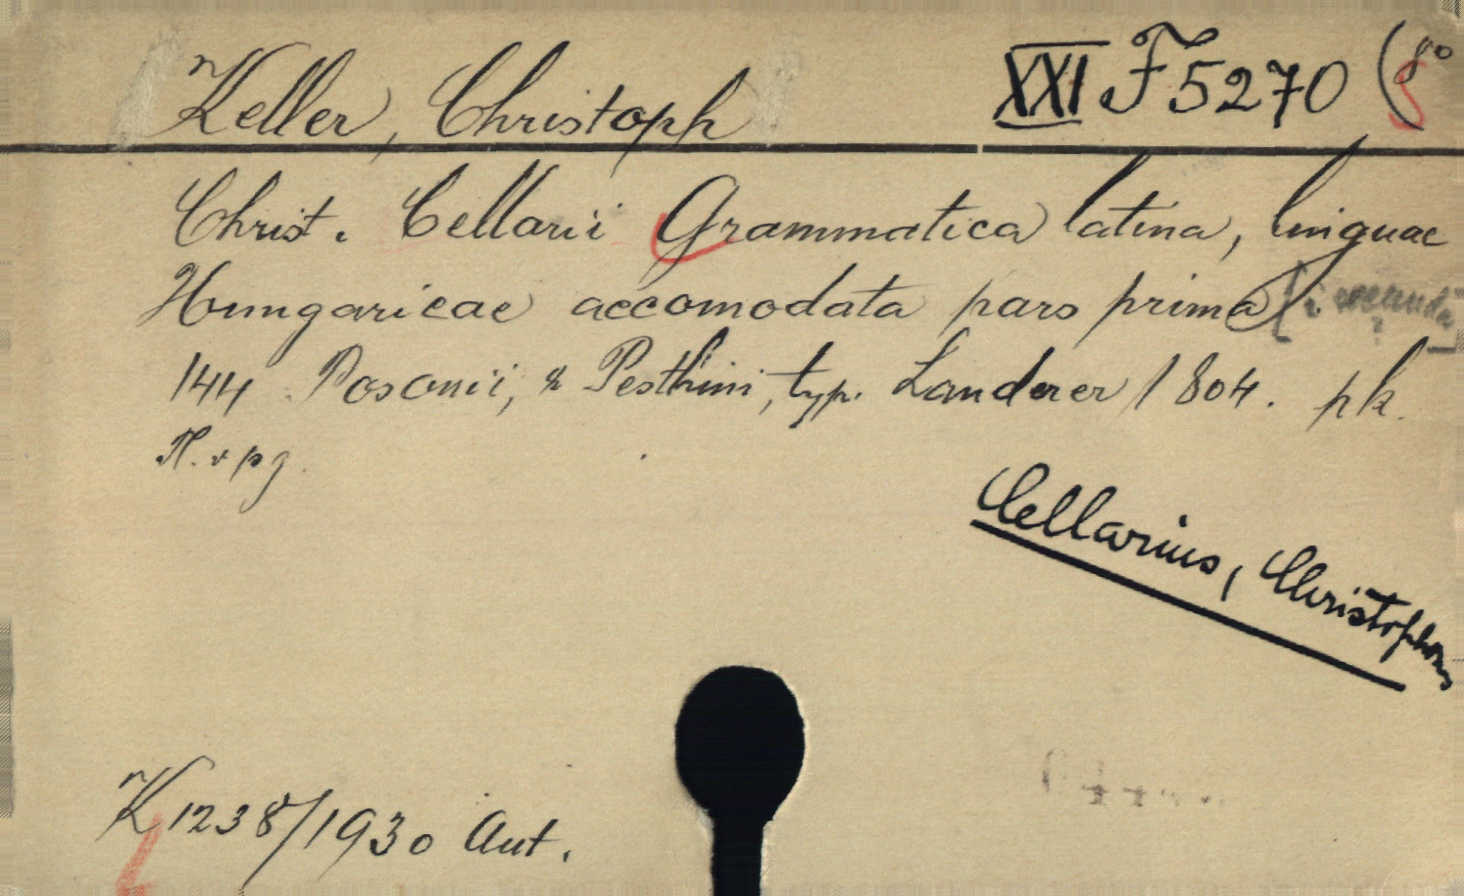 Keller, Christoph XXI F 5270 (8º
Christ. Cellarii Grammatica latina, linguae
Hungaricae accomodata pars prima [i secunda
144 Posonii, & Pesthini, typ. Landerer 1804. pk.
Cellarius, Christophorus
K 1238/1930 Aut.